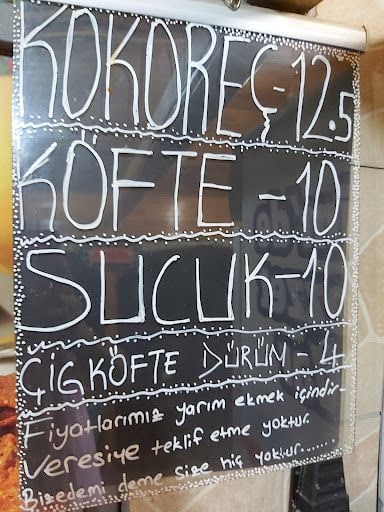 KOKOREÇ-12.5
KÖFTE - 10
SUCUK-10
ÇİG KÖFTE DÜRÜM - 4
Fiyatlarımız yarım ekmek içindir-
Veresiye teklif etme yoktur.
Bizedemi deme size hiç yoktur......